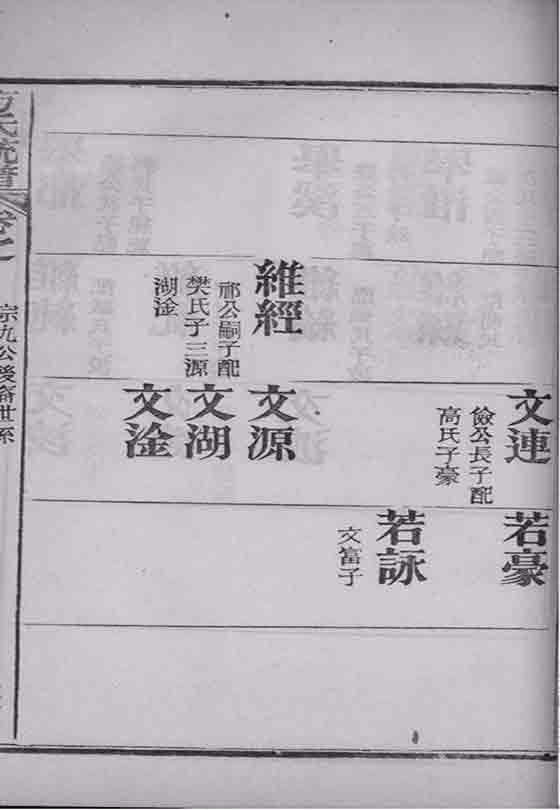 維經
祁公嗣子配
樊氏子三源
湖淦
文連
儉公長子配
高氏子豪
文源
文湖
文淦
若豪
若詠
文富子
氏統譜
卷之
宗九公後裔世系